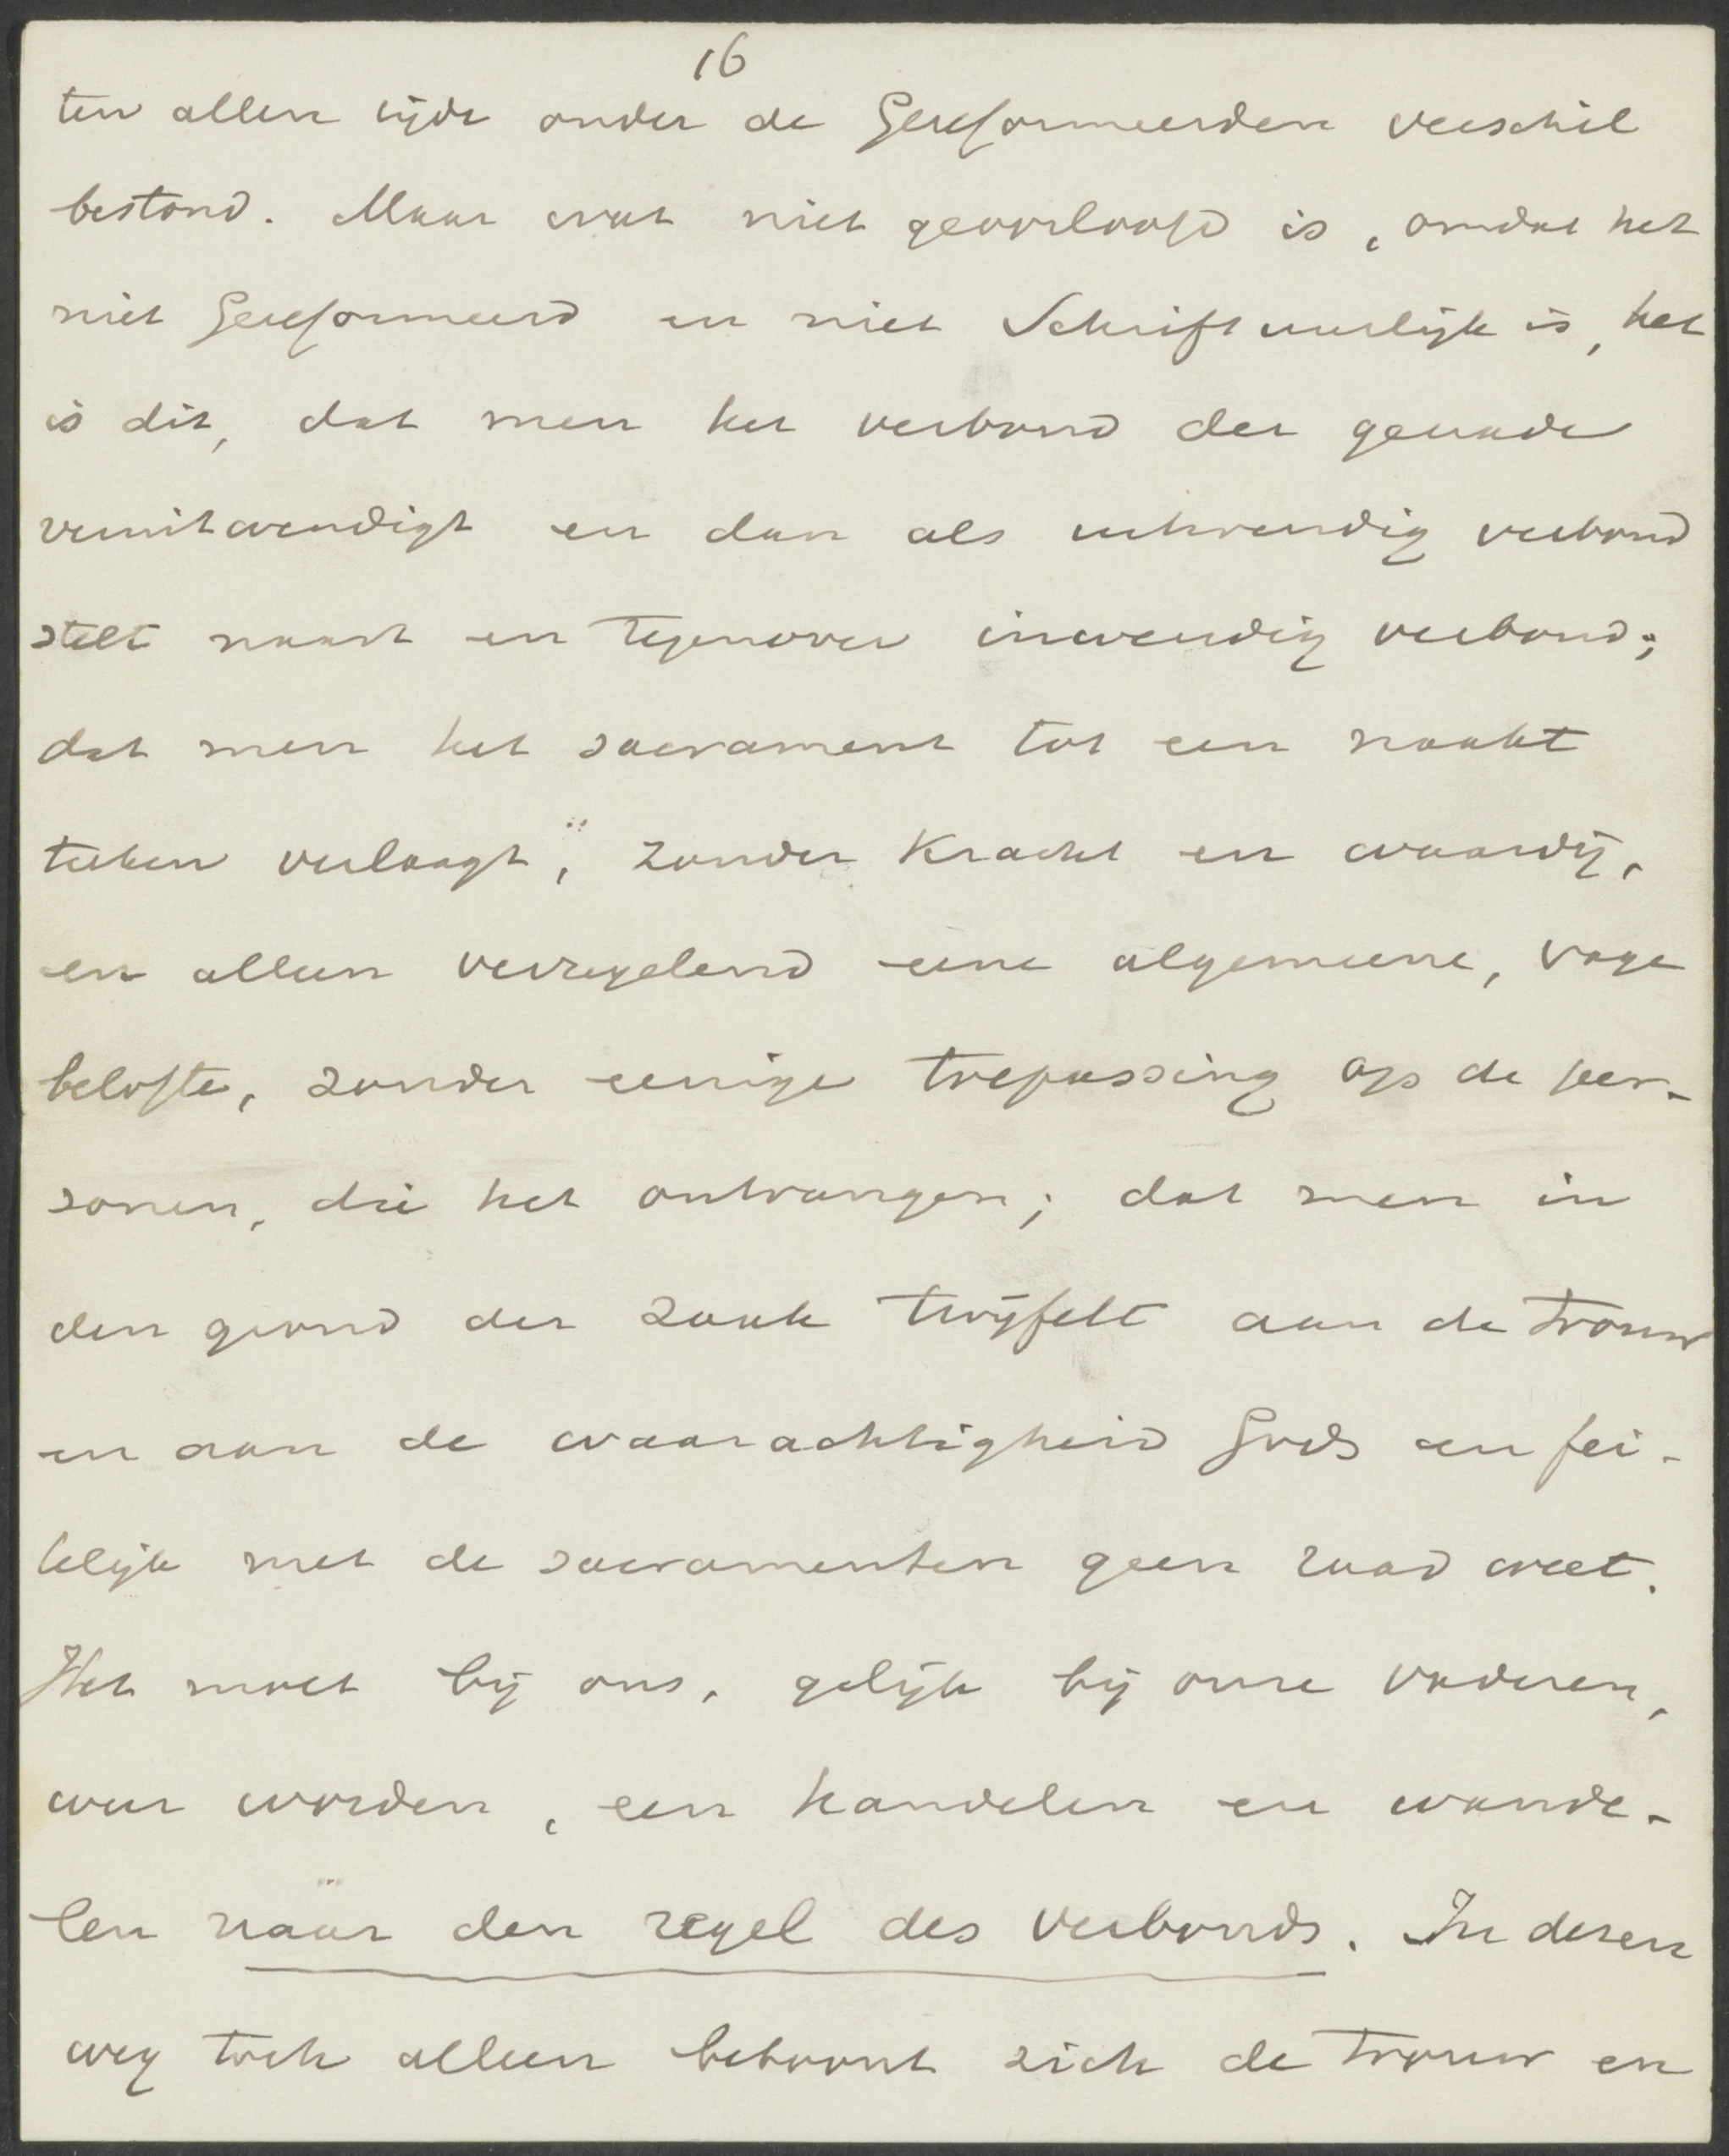 16
ten allen tijde onder de Gereformeerden verschil
bestond. Maar wat niet geoorloofd is, omdat het
niet Gereformeerd en niet Schriftuurlijk is, het
is dit, dat men het verbond der genade
veruitwendigt en dan als uitwendig verbond
stelt naast en tegenover inwendig verbond;
dat men het sacrament tot een naakt
teeken verlaagt, zonder kracht en waardij,
en alleen verzegelend eene algemeene, vage
belofte, zonder eenige toepassing op de per-
sonen, die het ontvangen; dat men in
den grond der zaak twijfelt aan de trouw
en aan de waarachtigheid Gods en fei-
telijk met de sacramenten geen raad weet.
Het moet bij ons, gelijk bij onze vaderen,
weer worden, een handelen en wande-
len naar den regel des verbonds. In dezen
weg toch alleen betoont zich de trouw en